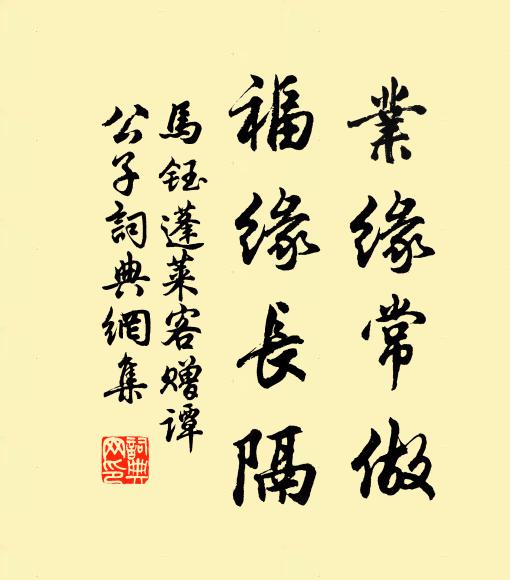 業緣常做
福緣長隔
馬鈺蓬萊客贈譚
公子詞典網集
詞典
网印